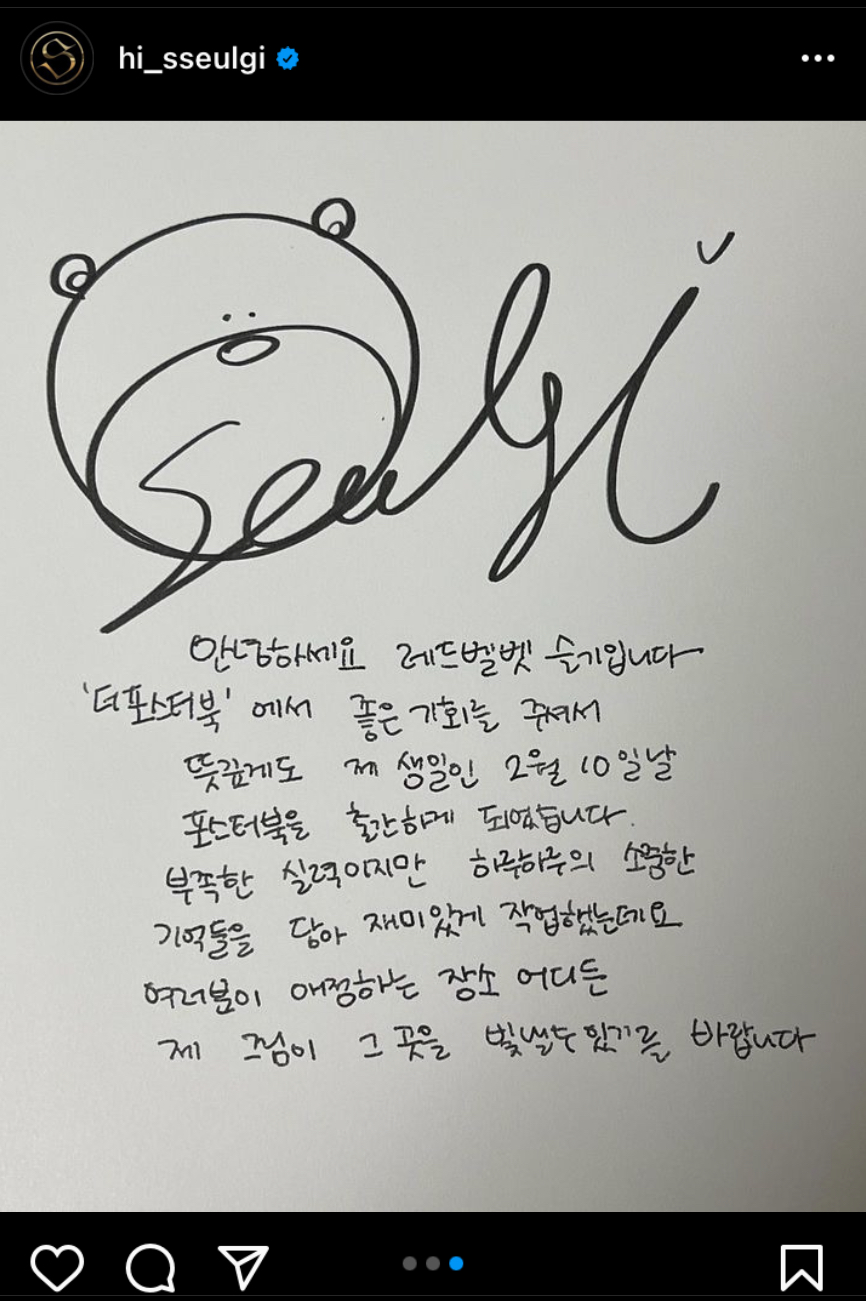 hi_sseulgi
Seulgi
안녕하세요 레드벨벳 슬기입니다
'더포스터북' 에서 좋은 기회를 주셔서
뜻깊게도 제 생일인 2월 10일날
포스터북을 출간하게 되었습니다.
부족한 실력이지만 하루하루의 소중한
기억들을 담아 재미있게 작업했는데요
여러분이 애정하는 장소 어디든
제 그림이 그 곳을 빛낼수있기를 바랍니다